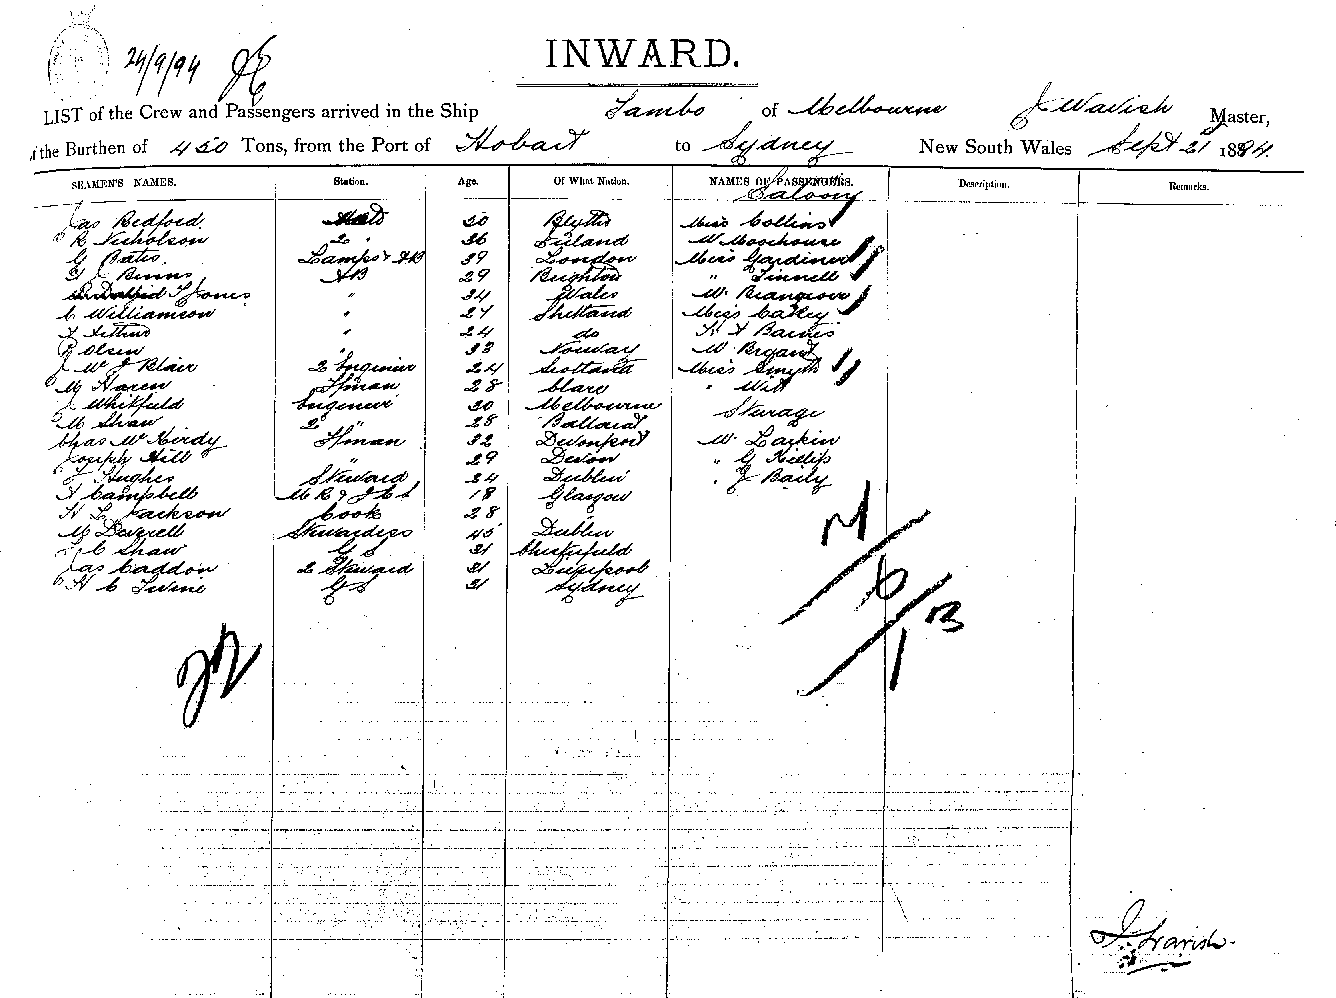 24/9/94
INWARD.
LIST of the Crew and Passengers arrived in the Ship Tambo of Melbourne J Wavish Master,
of the Burthen of 450 Tons, from the Port of Hobart to Sydney New South Wales Sept 21 1894.
SEAMEN'S NAMES. Station. Age. Of What Nation. NAMES OF PASSENGERS. Description. Remarks.
Saloon
Jas Bedford Mate 30 Blyth Miss Collins
R Nicholson 2 " 36 W Moorhouse
G Bates Lamps & AB 39 London Miss Gardiner
J Binns AB 29 Brighton "
David T Jones " 34 Wales W.
C Williamson " 27 Shetland Miss
" 24 do H A
P Olsen " 33 Norway W. Bryant
J W J Blair 2 Engineer 24 Scotland Miss Smyth
M Haren Fman 28 Clare "
J Whitfield Engineer 30 Melbourne Sturage
M Shaw 2 " 28 Ballarat
Chas W Hirdy Fman 32 Devonport W. Larkin
Joseph Hill " 29 Devon " G
J Hughes Steward 34 Dublin " J Baily
A Campbell 18 Glasgow
H L Jackson Cook 28 "
M Stewardess 45 Dublin
C Shaw G S 21 Chesterfield
Jas Caddon 2 Steward 21 Liverpool
H C Irvine G S 21 Sydney